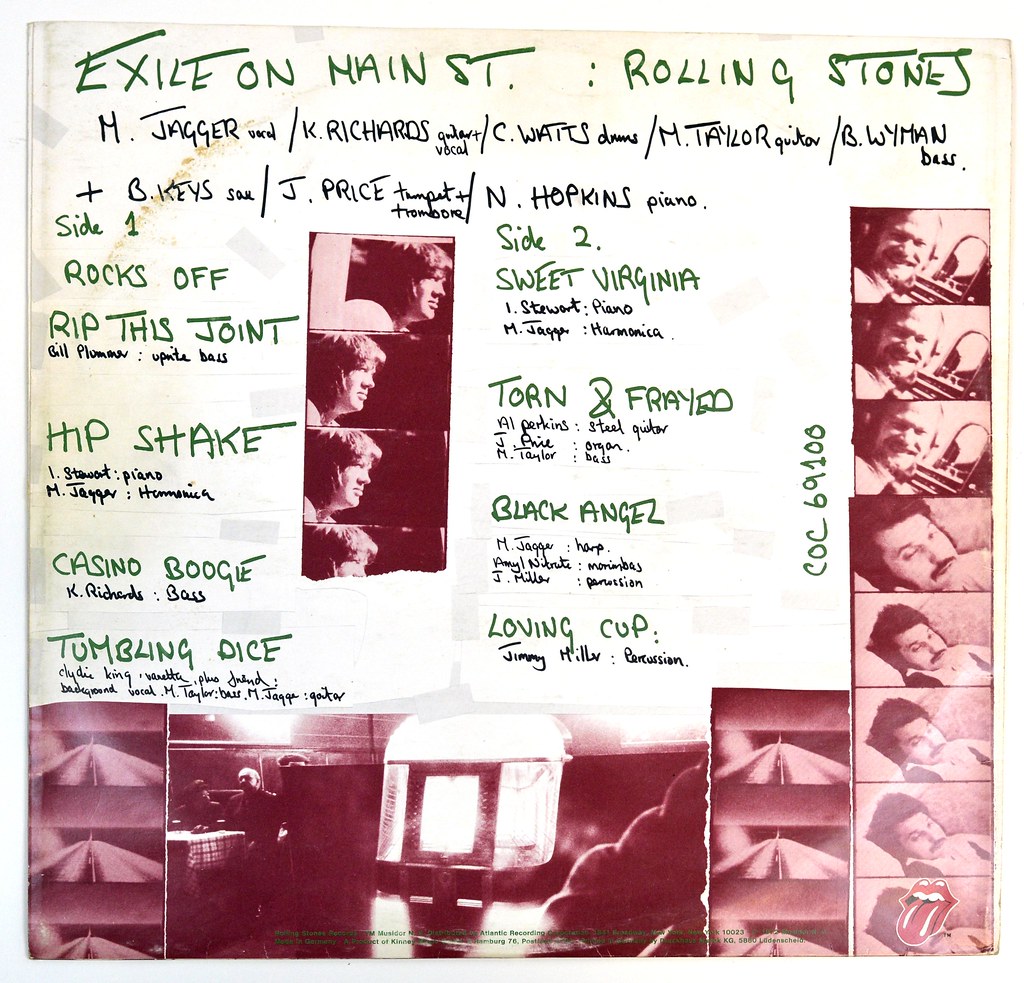 EXILE ON MAIN ST. : ROLLING STONES
M. JAGGER vocal / K. RICHARDS guitar + vocal / C. WATTS drums / M. TAYLOR guitar / B. WYMAN bass.
+ B. KEYS sax / J. PRICE trumpet + trombone / N. HOPKINS piano.
Side 1
ROCKS OFF
RIP THIS JOINT
Bill Plummer : uprite bass
HIP SHAKE
I. Stewart : piano
M. Jagger : Harmonica
CASINO BOOGIE
K. Richards : Bass
TUMBLING DICE
clydie king, vanetta, plus friend :
background vocal. M. Taylor : bass. M. Jagger : guitar
Side 2.
SWEET VIRGINIA
I. Stewart : Piano
M. Jagger : Harmonica.
TORN & FRAYED
Al perkins : steel guitar
J. Price : organ.
M. Taylor : bass
BLACK ANGEL
M. Jagger : harp.
Amyl Nitrate : marimbas
J. Miller : percussion
LOVING CUP :
Jimmy Miller : Percussion.
COC 69100
Rolling Stones Records Musidor Distributed Atlantic Recording New York 10023
Made in Germany A Product of Kinney Hamburg 76, KG, 5880 Lüdenscheid.
TM